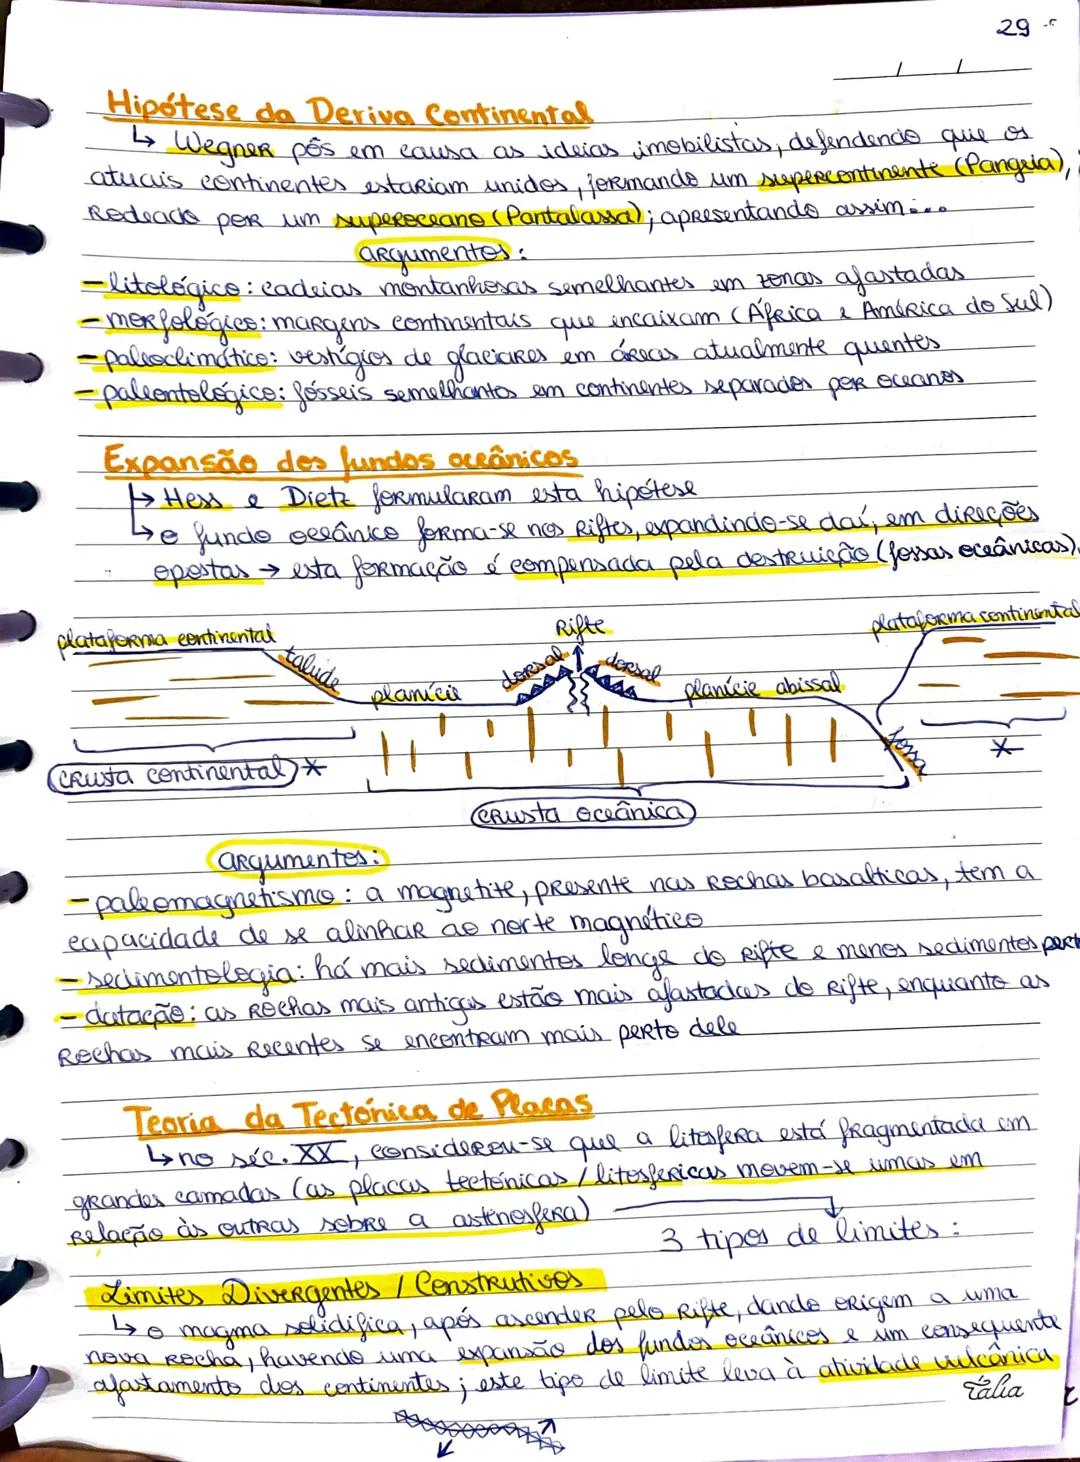 29
Hipótese da Deriva Continental
↳ Wegner pôs em causa as ideias imobilistas, defendendo que os
atuais continentes estariam unidos, formando um supercontinente (Pangeia),
Rodeado por um superoceano (Pantalassa); apresentando assim...
argumentos:
- litológico: cadeias montanhosas semelhantes em zonas afastadas
- morfológico: margens continentais que encaixam (África e América do Sul)
- paleoclimático: vestígios de glaciares em áreas atualmente quentes
- paleontológico: fósseis semelhantes em continentes separados por oceanos
Expansão dos fundos oceânicos
↳ Hess e Dietz formularam esta hipótese
↳ o fundo oceânico forma-se nos Riftes, expandindo-se daí, em direções
opostas → esta formação é compensada pela destruição (fossas oceânicas).
plataforma continental
talude
planície
dorsal
Rifte
dorsal
planície abissal
plataforma continental
fossa
*
crusta continental *
crusta oceânica
argumentos:
- paleomagnetismo: a magnetite, presente nas Rochas basalticas, tem a
capacidade de se alinhar ao norte magnético
- sedimentologia: há mais sedimentos longe do Rifte e menos sedimentos perto
- datação: as Rochas mais antigas estão mais afastadas do Rifte, enquanto as
Rochas mais Recentes se encontram mais perto dele
Teoria da Tectónica de Placas
↳ no séc. XX, considerou-se que a litosfera está fragmentada em
grandes camadas (as placas tectónicas / litosfericas movem-se umas em
Relação às outras sobre a astenosfera)
3 tipos de limites:
Limites Divergentes / Construtivos
↳ o magma solidifica, após ascender pelo Rifte, dando origem a uma
nova Rocha, havendo uma expansão dos fundos oceânicos e um consequente
afastamento dos continentes; este tipo de limite leva à atividade vulcânica
Tália